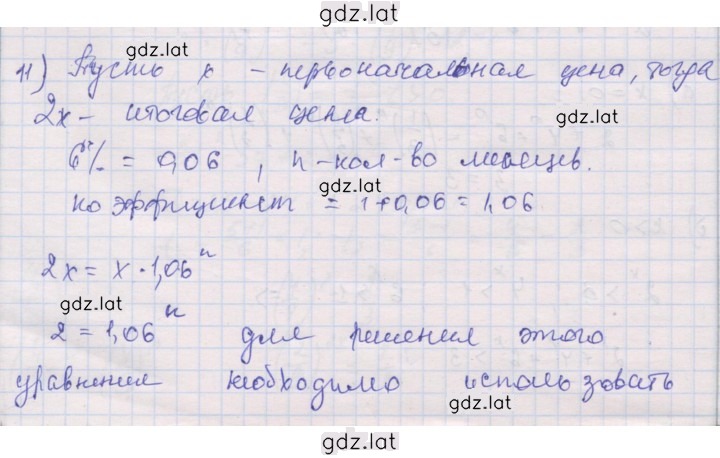 gdz.lat
gdz.lat
11) Пусть x – первоначальная цена, тогда
2x – итоговая цена.
gdz.lat
6% = 0,06 , n – кол-во месяцев.
gdz.lat
коэффициент = 1+0,06 = 1,06
2x = x · 1,06ⁿ
gdz.lat
2 = 1,06ⁿ для решения этого
уравнения необходимо использовать
gdz.lat
gdz.lat